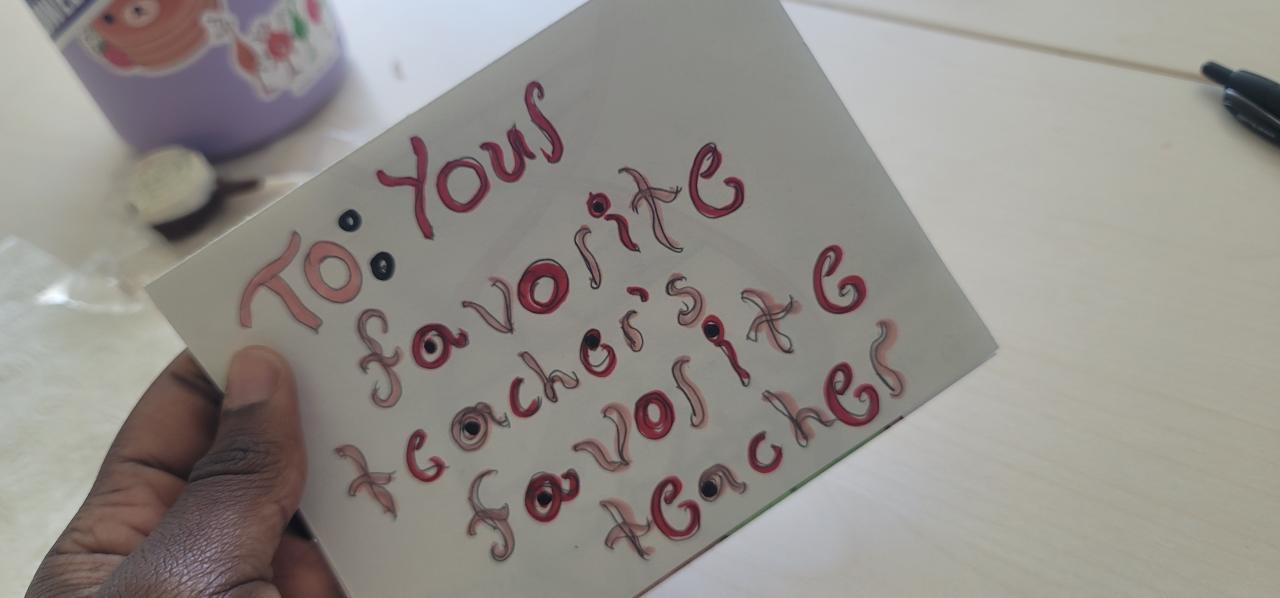 TO: Your
favorite
teacher's
favorite
teacher